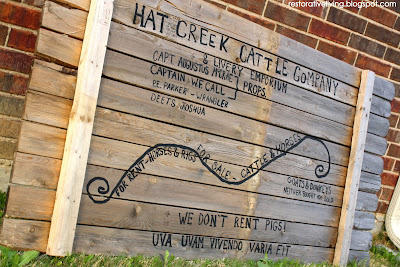 restorativeliving.blogspot.com
HAT CREEK CATTLE COMPANY
& LIVERY EMPORIUM
CAPT. AUGUSTUS MCCRAE
CAPTAIN WF CALL
PROPS.
P.E. PARKER - WRANGLER
DEETS, JOSHUA
FOR RENT - HORSES & RIGS
FOR SALE - CATTLE & HORSES
GOATS & DONKEYS
NEITHER BOUGHT NOR SOLD
WE DON'T RENT PIGS!
UVA UVAM VIVENDO VARIA FIT